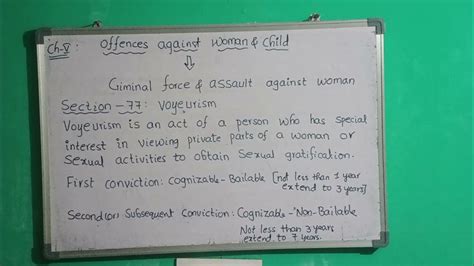 Ch-V: Offences against woman & Child
⇓
Criminal force & assault against woman
Section-77: Voyeurism
Voyeurism is an act of a person who has special
interest in viewing private parts of a woman or
Sexual activities to obtain Sexual gratification.
First conviction: Cognizable-Bailable [not less than 1 year
extend to 3 years]
Second(or) Subsequent Conviction: Cognizable-Non-Bailable
Not less than 3 years
extend to 7 years.